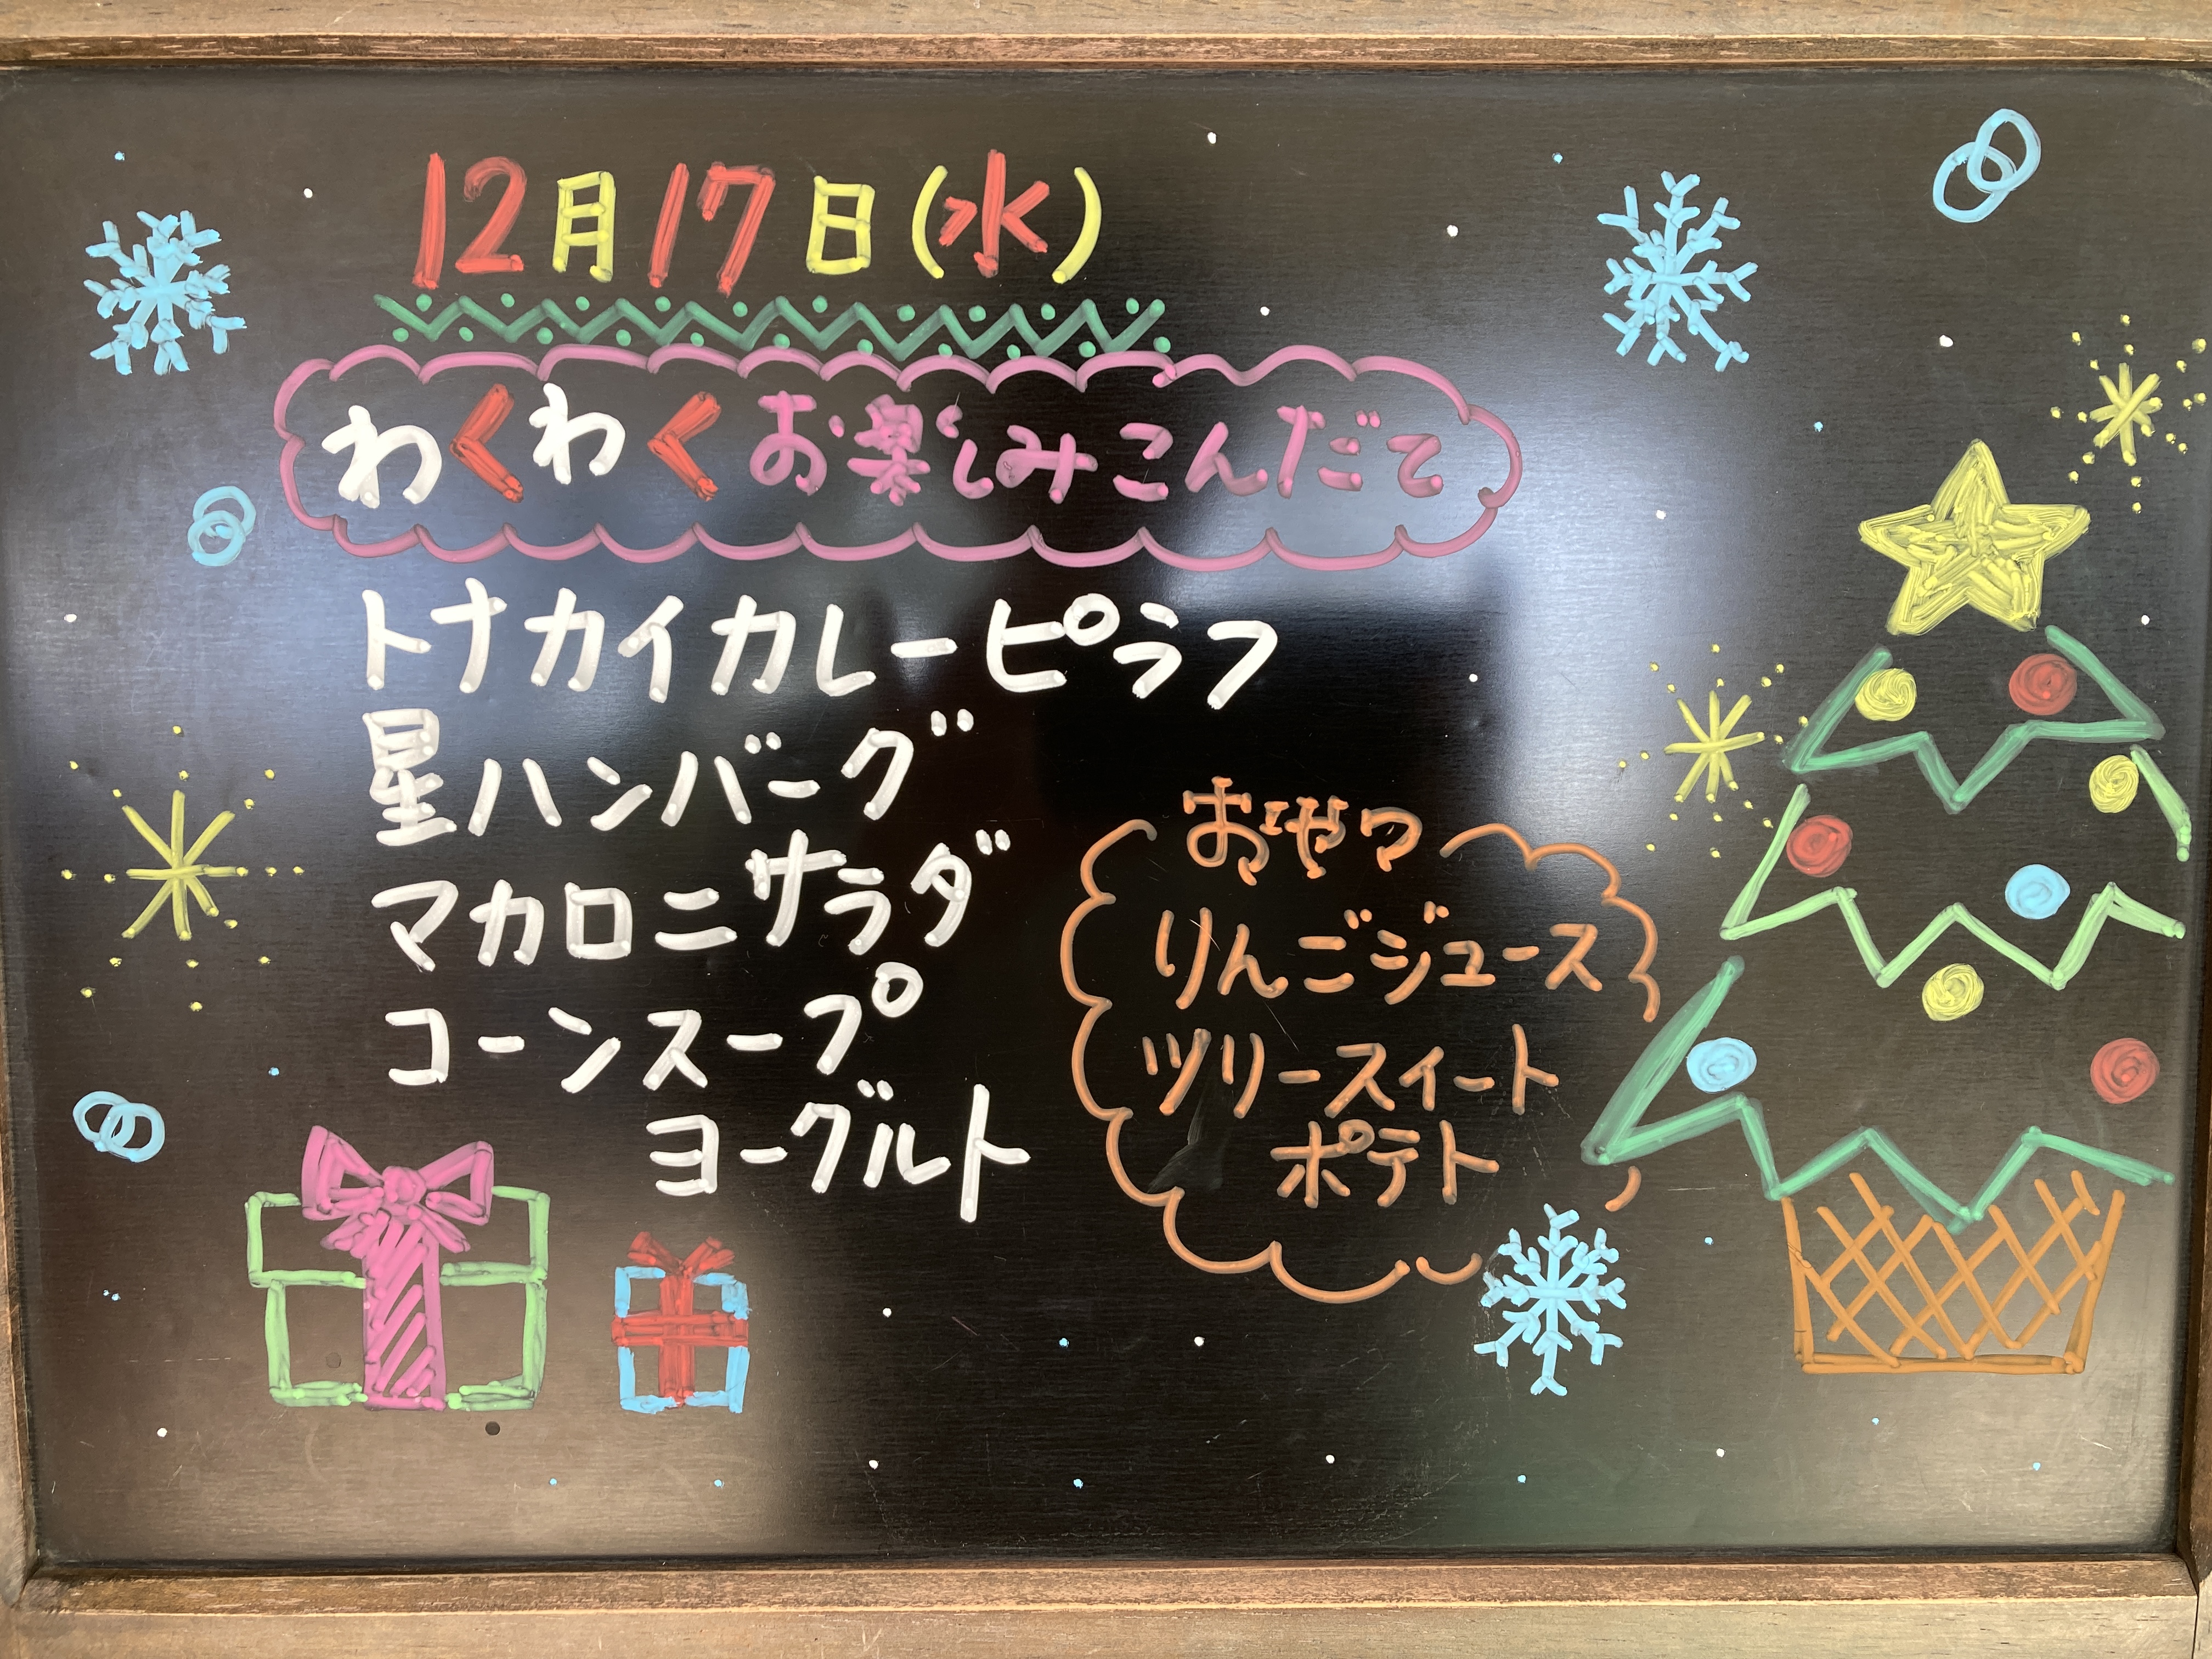 12月17日(水)
わくわくお楽しみこんだて
トナカイカレーピラフ
星ハンバーグ
マカロニサラダ
コーンスープ
ヨーグルト
おやつ
りんごジュース
ツリースイート
ポテト